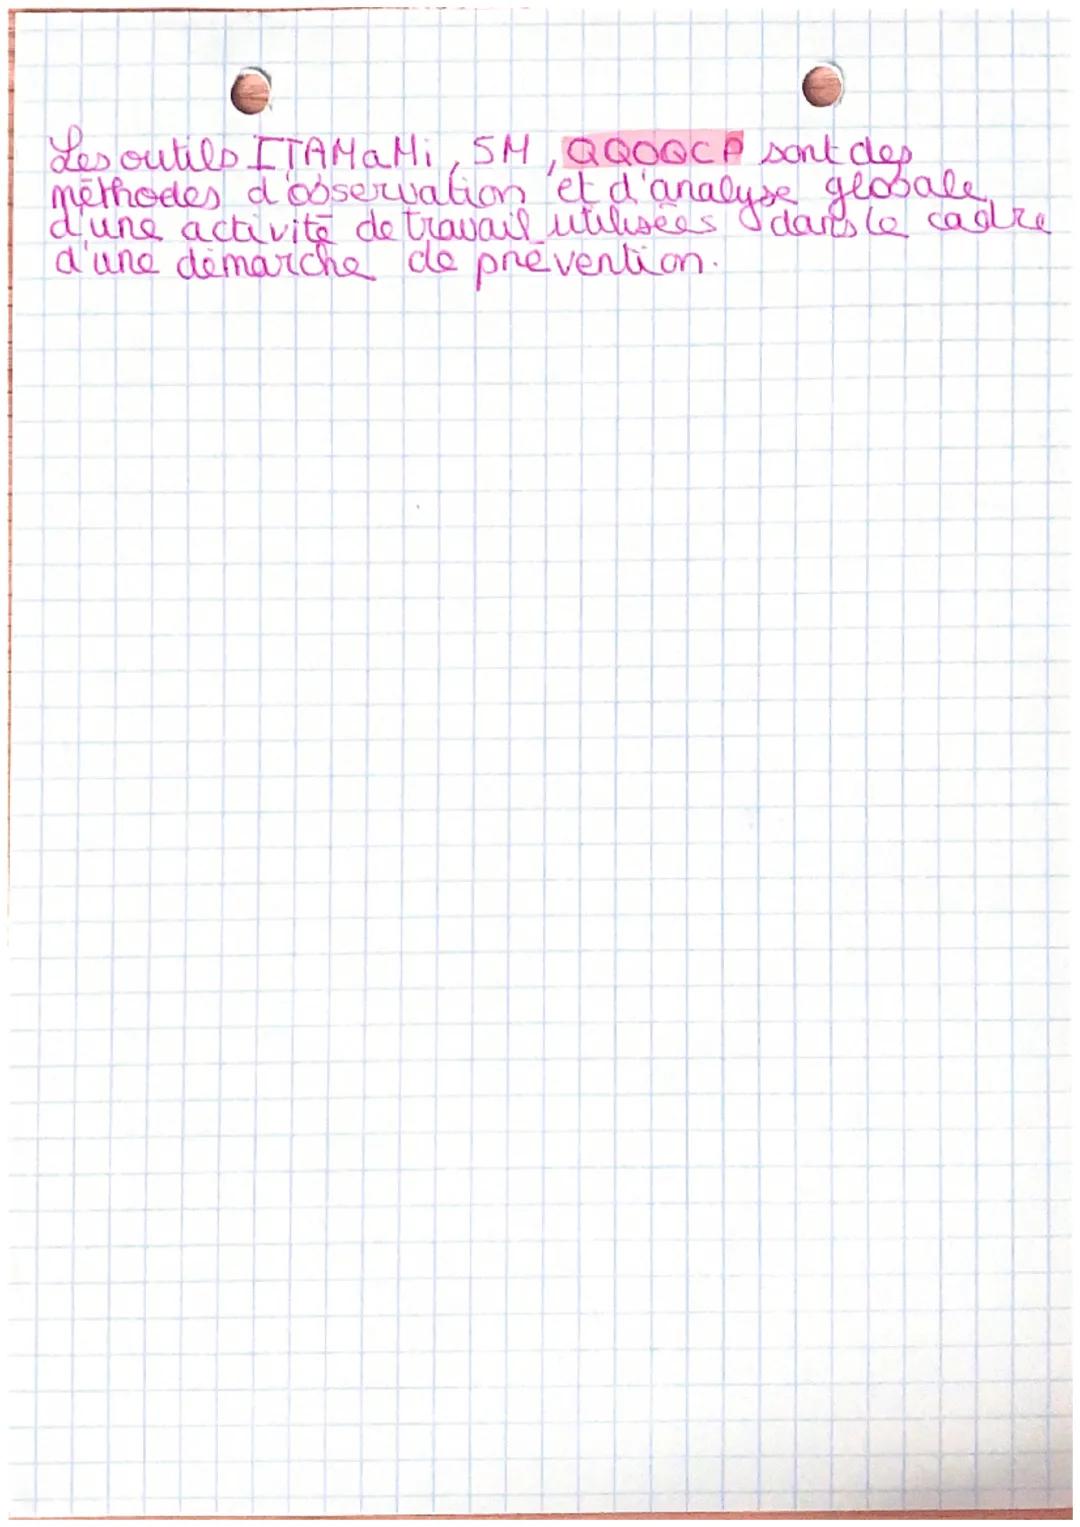 Les outils ITAMaMi, 5M, QQOQCP sont des
méthodes d'observation et d'analyse globale
d'une activité de travail utilisées dans le cadre
d'une démarche de prévention.